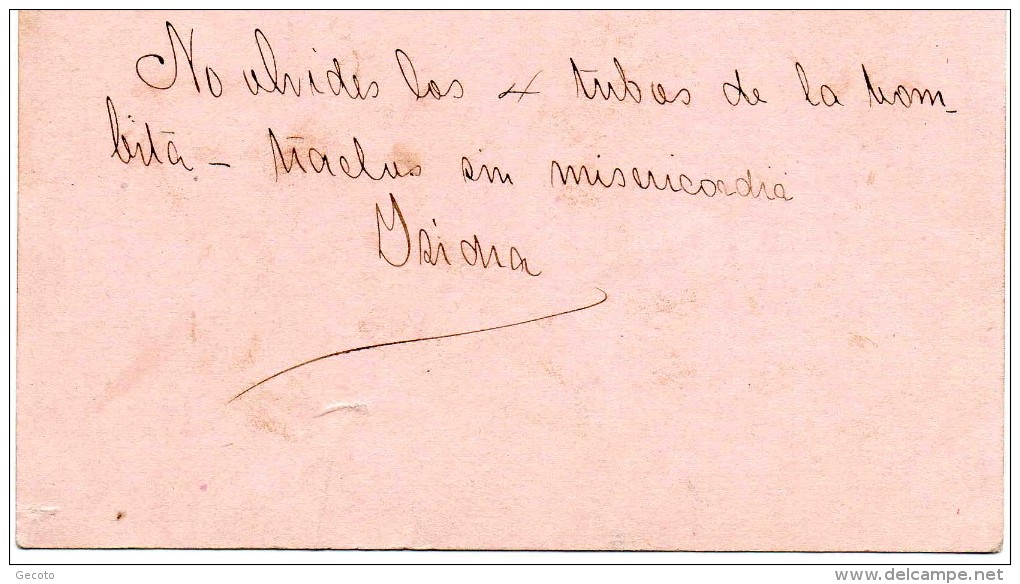 No olvides los 4 tubos de la bom-
bita - traelos sin misericordia
Isidra
Gecoto
delcampe.net